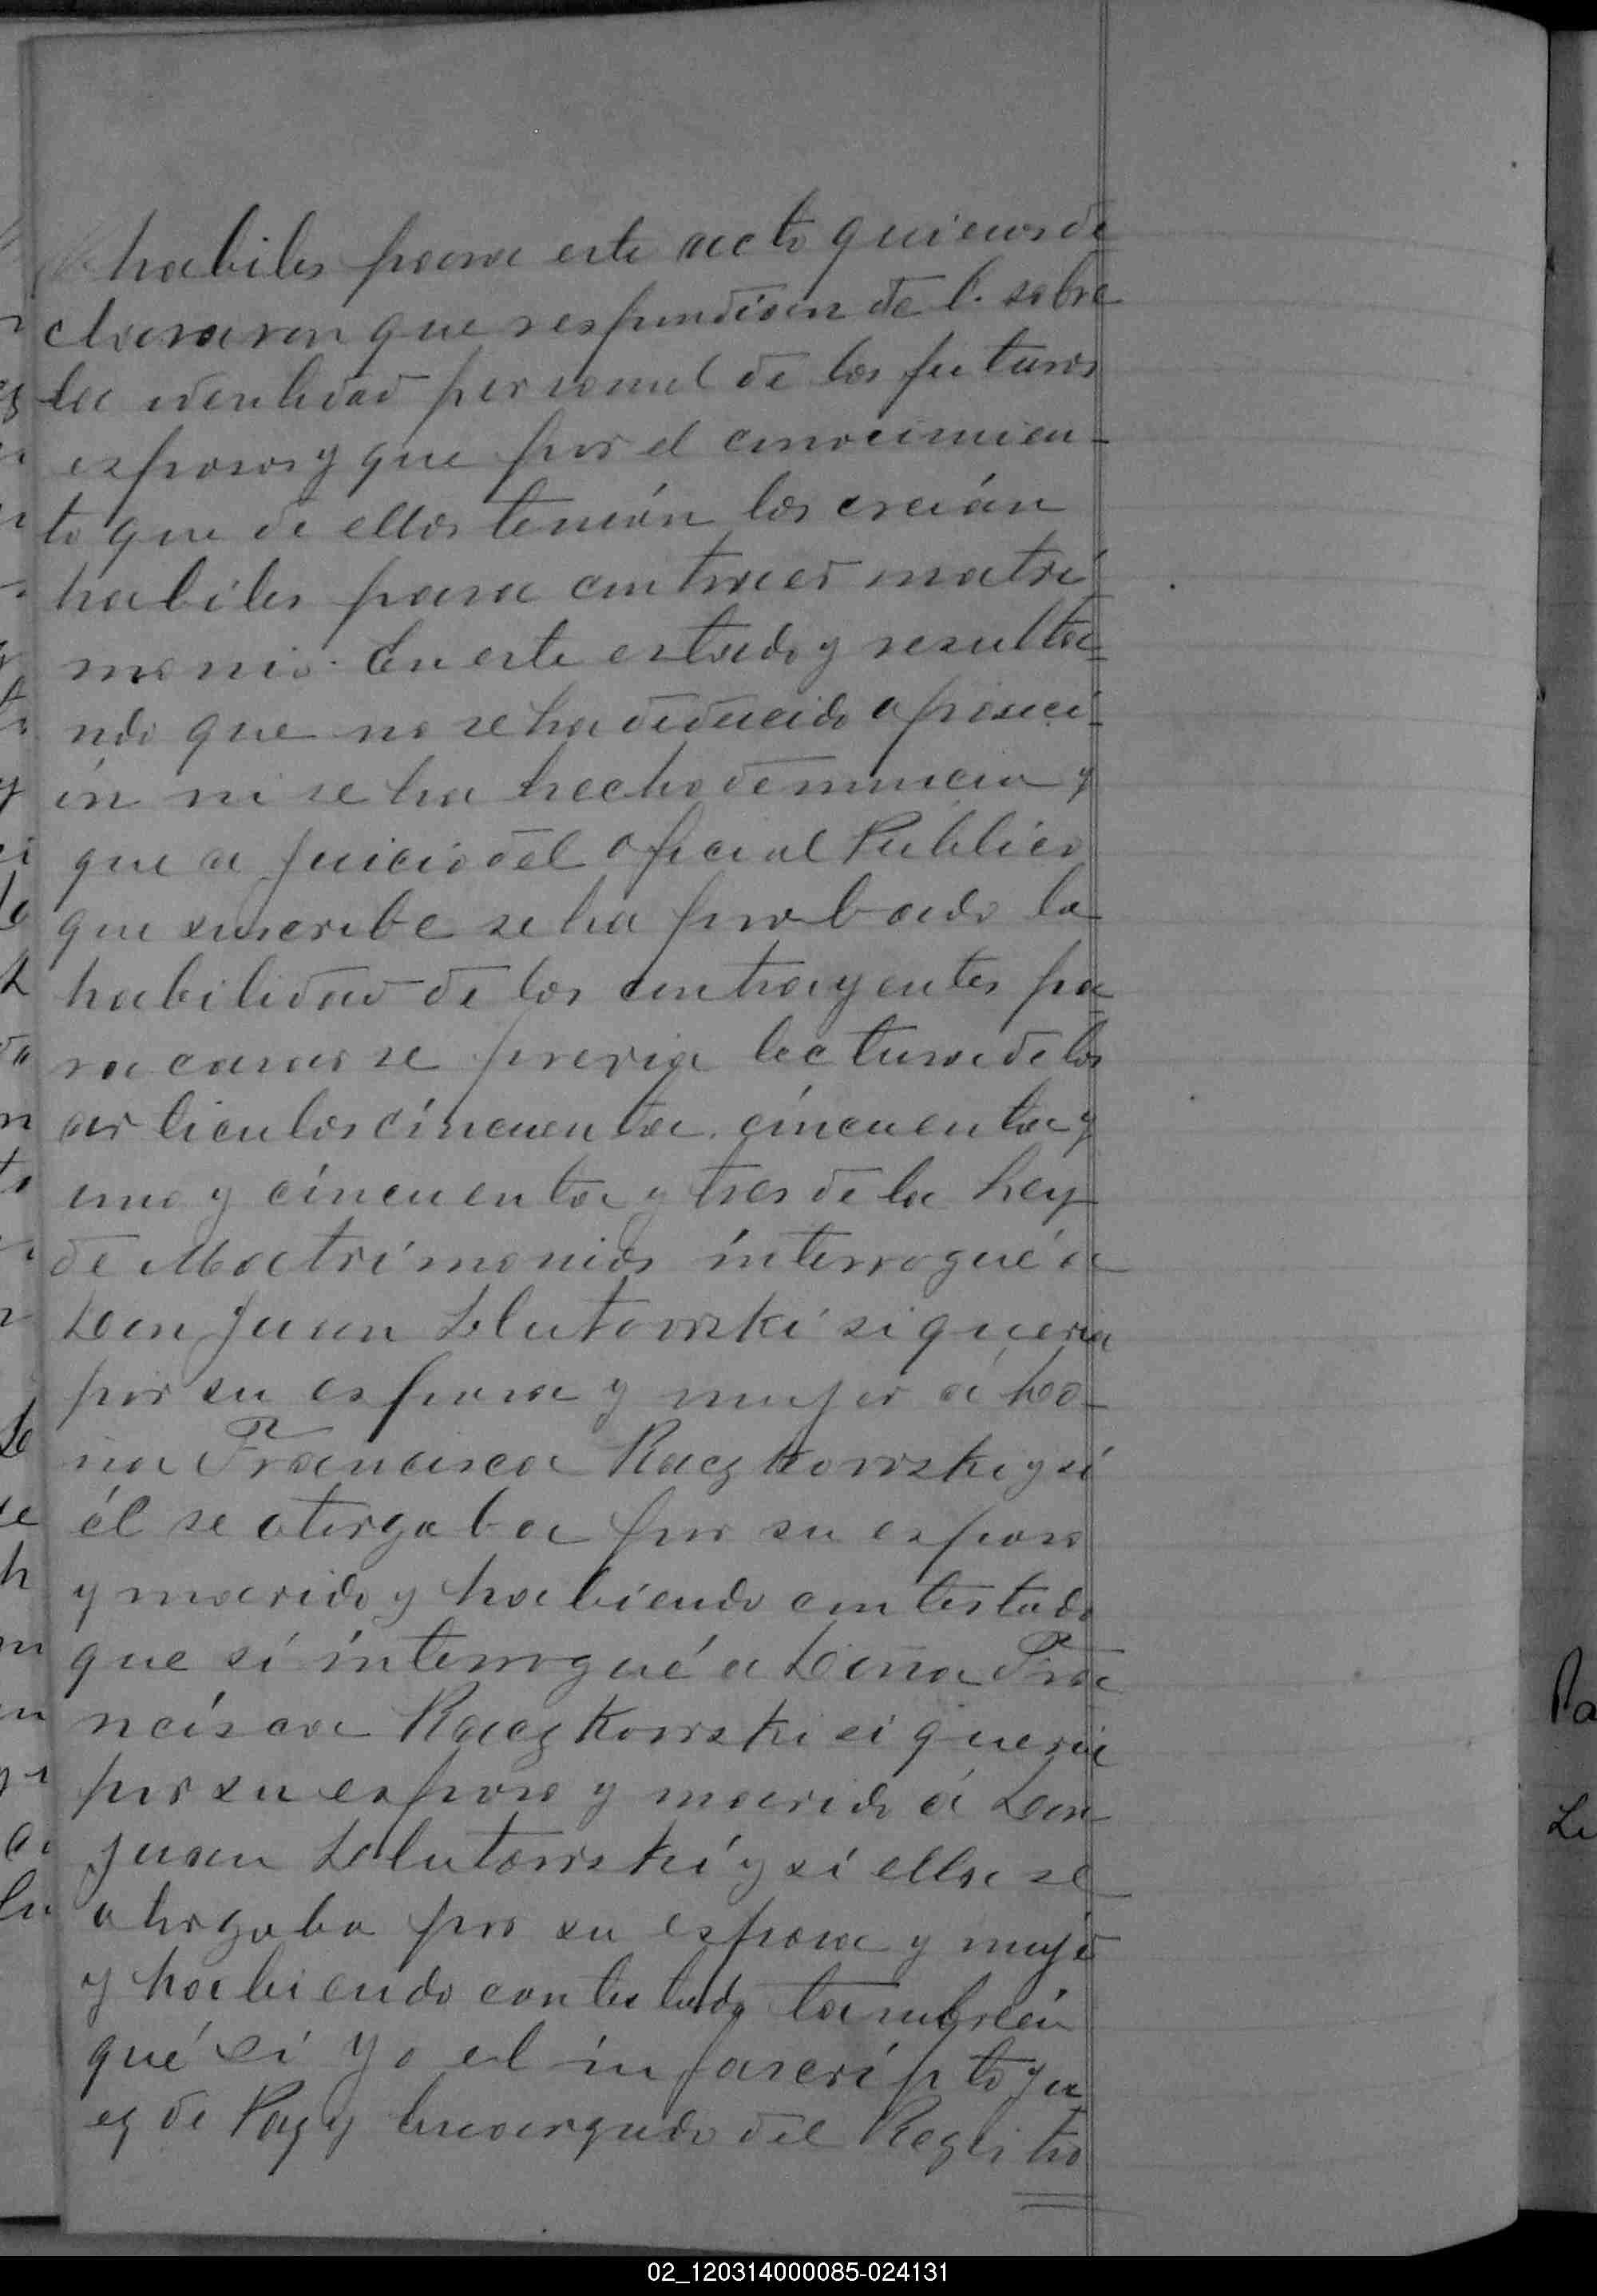 habiles para este acto quienes de
clararon que respondian de l. sobre
la identidad personal de los futuros
esposos y que por el conocimien-
to que de ellos tenián los creián
habiles para contraer matri-
monio. En este estado y resulta-
ndo que no se ha deducido oposici-
ón ni se ha hecho denuncia y
que a juicio del oficial Publico
que suscribe se ha probado la
habilidad de los contrayentes pa-
ra casarse previa lectura de los
articulos cincuenta, cincuenta y
uno y cincuenta y tres de la Ley
de Matrimonios interrogué a
Don Juan Llutowski si queria
por su esposa y mujer á Do-
ña Francisca Raczkowski y si
él se otorgaba por su esposo
y marido y habiendo contestado
que si interrogué a Doña Fra
ncisca Raczkowski si queria
por su esposo y marido á Don
Juan Llutowski y si ella se
otorgaba por su esposa y mujer
y habiendo contestado tambien
qué si Yo el infascripto Ju
ez de Paz y Encargado del Registro
Pa
02_120314000085-024131